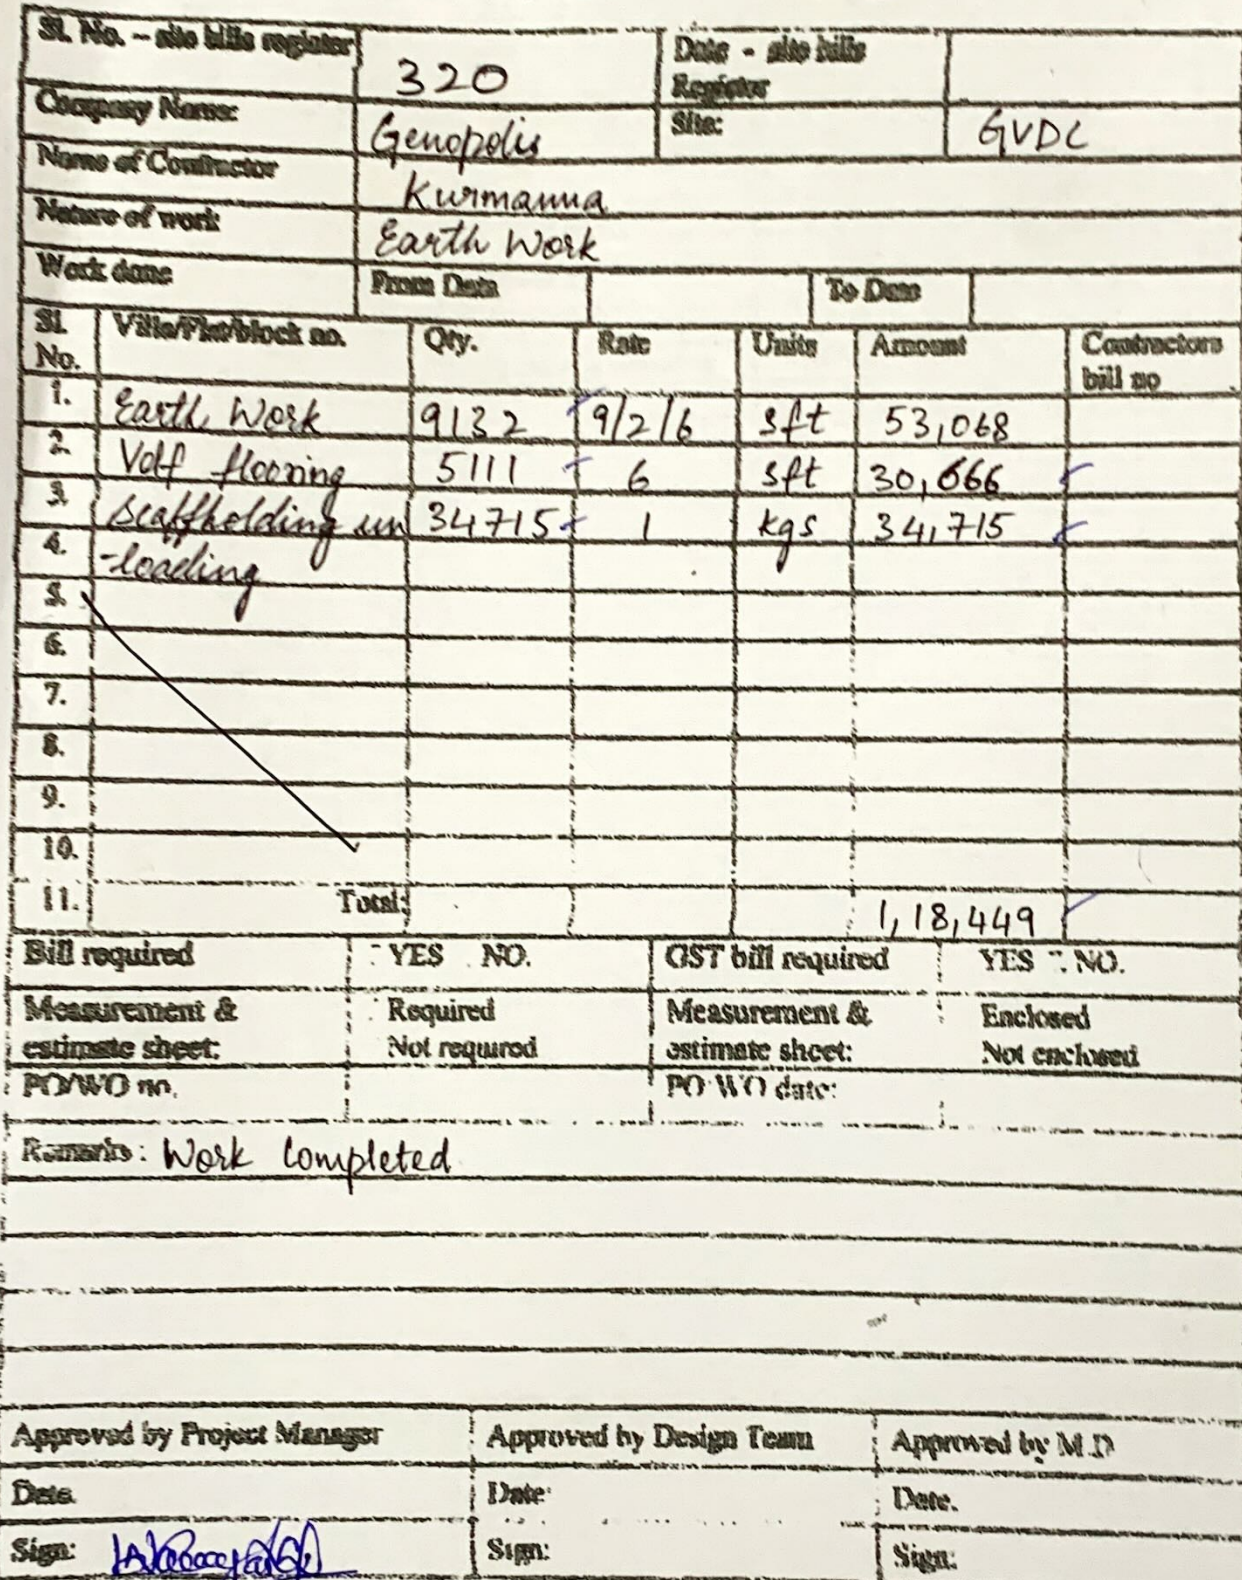 Sl. No. – site bills register 320 Date - site bills Register
Company Name: Genopolis Site: GVDC
Name of Contractor Kurmanna
Nature of work Earth Work
Work done From Date To Date
Sl. No. Villa/Flat/block no. Qty. Rate Units Amount Contractors bill no
1. Earth Work 9132 9/2/6 sft 53,068
2. Vdf flooring 5111 6 sft 30,666
3. Scaffholding un 34715 1 kgs 34,715
4. -loading
5.
6.
7.
8.
9.
10.
11. Total: 1,18,449
Bill required YES NO. GST bill required YES NO.
Measurement & estimate sheet: Required Not required Measurement & estimate sheet: Enclosed Not enclosed
PO/WO no. PO WO date:
Remarks: Work Completed
Approved by Project Manager Approved by Design Team Approved by M.D
Date. Date: Date.
Sign: Sign: Sign: